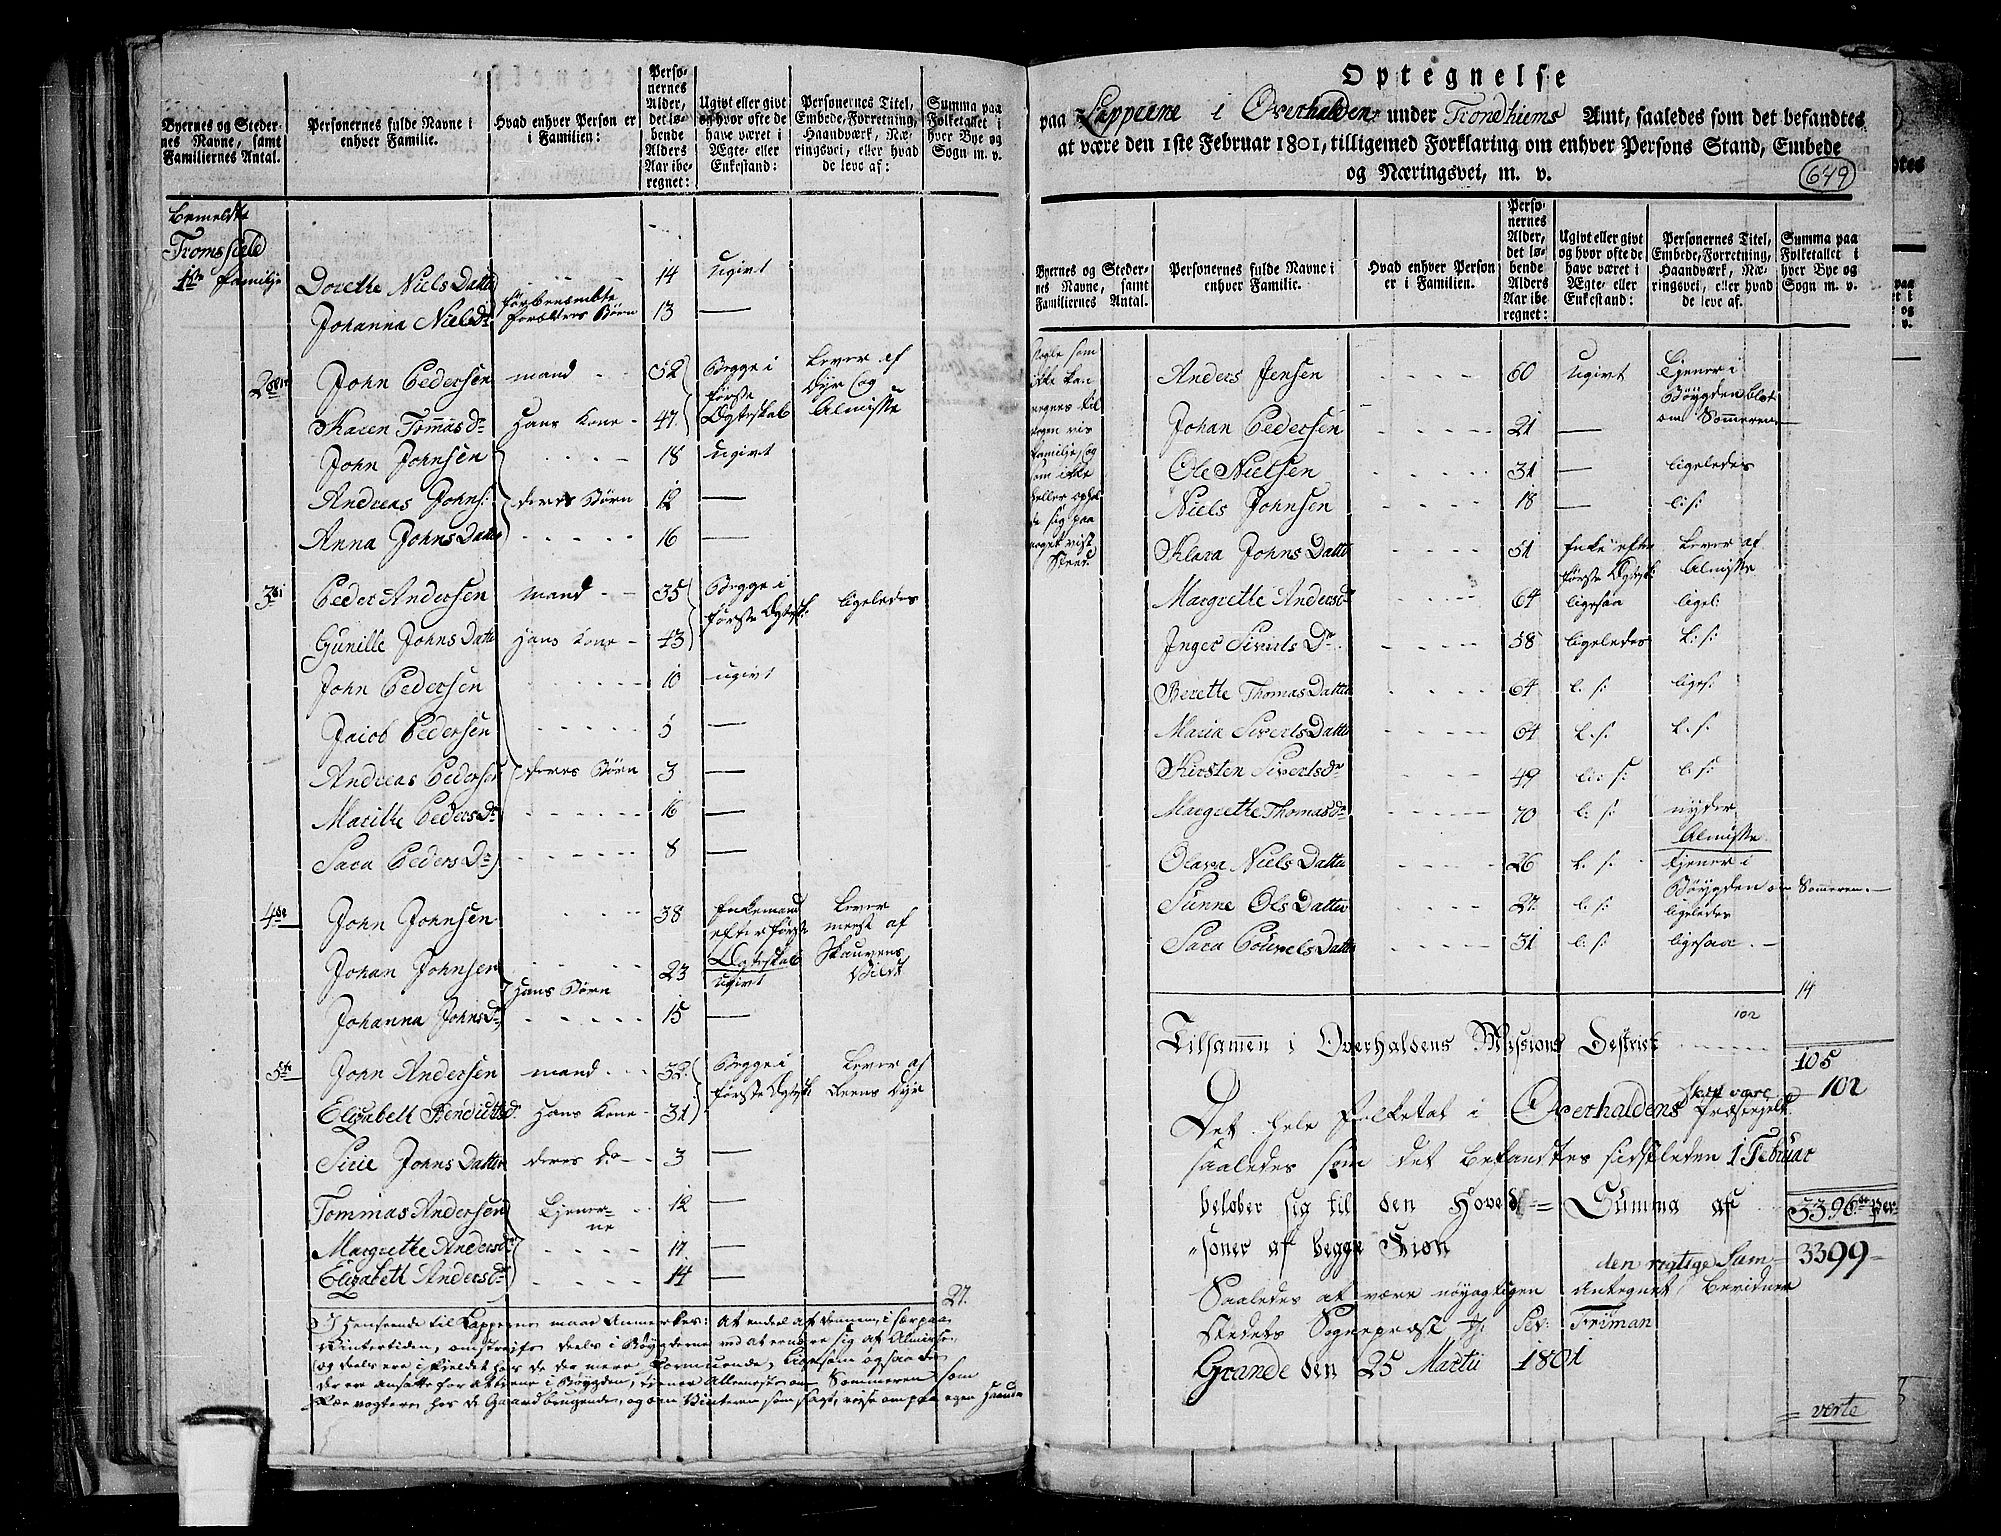 Byernes og Steder-
nes Navne, samt
Familiernes Antal.
Personernes fulde Navne i
enhver Familie.
Hvad enhver Person er
i Familien:
Perso-
nernes
Alder,
det lø-
bende
Alders
Aar ibe-
regnet:
Ugivt eller givt
og hvor ofte de
have været i
Ægte- eller
Enkestand:
Personernes Titel,
Embede, Forretning,
Haandværk, Næ-
ringsvei, eller hvad
de leve af:
Summa paa
Folketallet i
hver Bye og
Sogn m. v.
Bemeldte
Tromsfield
1ste Familje Dorethe Niels Datter 14 ugivt
Johanna Nielsdr forbenembte Forældres Børn 13 —
2den John Pedersen mand - - 52 Begge i første Ægteskab Lever af Dyr og Almisse
Karen Tomasdr Hans Kone - 47
John Johnsen - - - - 18 ugivt
Andreas Johns: deres Børn 12 —
Anna Johns Datter - - - - 16 —
3di Peder Andersen mand - - 35 Begge i første Ægtesk: ligeledes
Gunille Johns Datter Hans Kone - 43
John Pedersen - - - - 10 ugivt
Jacob Pedersen - - - - 5 —
Andreas Pedersen deres Børn 3 —
Marithe Pedersdr - - - - 16 —
Sara Pedersdr - - - - 8 —
4de John Johnsen - - - - 38 Enkemand efter første Ægteskab Lever meest af Skauvens Vildt
Johan Johnsen - - - - 23 ugivt
Hans Børn
Johanna Johnsdr - - - - 15 —
5te John Andersen mand - - - 32 Begge i første Ægtesk: Lever af Reens Dyr
Elizabeth Bendictsdr Hans Kone - 31
Sirie Johns Datter deres Dr - - 3 —
Tommas Andersen Tjener-
ne - - 12 —
Margrethe Andersdr - - - - 17 —
Elizabeth Andersdr - - - - 14 —
27.
I Henseende til Lapperne maae Anmerkes: at endeel af dennem, i sær paa
Vintertiden, omstreife deels i Bøygderne ved at ernære sig af Almisse,
og deels ere i Fieldet hos de der mere Formuende, ligesom ogsaa de
der ere ansatte for at tiene i Bøygden, tiener Allemest om Sommeren som
hos de Gaardbrugende, og om Vinteren som sagt, reise om paa egen Haand
Optegnelse
paa Lapperne i Overhalden under Trondhiems Amt, saaledes som det befandtes
at være den 1ste Februar 1801, tilligemed Forklaring om enhver Persons Stand, Embede
og Næringsvei, m. v.
649
Byernes og Steder-
nes Navne, samt
Familiernes Antal.
Personernes fulde Navne i
enhver Familie.
Hvad enhver Person
er i Familien.
Perso-
nernes
Alder,
det lø-
bende
Alders
Aar ibe-
regnet:
Ugivt eller givt
og hvor ofte de
have været i
Ægte- eller
Enkestand:
Personernes Titel,
Embede, Forretning,
Haandværk, Næ-
ringsvei, eller hvad
de leve af.
Summa paa
Folketallet i
hver Bye og
Sogn m. v.
Nogle som
ikke kan
regnes til
nogen vis
Familje, og
som ikke
heller ophol-
de sig paa
noget vist
Sted.
Anders Jensen - - - - 60 ugivt Tjener i Bøygden blot om Sommeren —
Johan Pedersen - - - - 21 —
Ole Nielsen - - - - 31 — ligeledes
Niels Johnsen - - - - 18 — l: s:
Klara Johns Datter - - - - 51 Enke efter første Ægtesk: Lever af Almisse
Margrethe Andersdr - - - - 64 ligesaa ligel:
Inger Siverts Dr - - - - 58 ligeledes l: s:
Berette Thomas Datter - - - - 64 l: s: liges:
Maria Siverts Datter - - - - 64 l: s: l: s:
Kirsten Sivertsdr - - - - 49 l: s: l: s:
Margrethe Thomasdr - - - - 70 l: s: nyder Almisse
Olava Niels Datter - - - - 26 l: s: tjener i Bøygden om Sommeren. —
Sunne Ols Datter - - - - 27. l: s: ligeledes
Sara Povels Datter - - - - 31 l: s: ligesaa —
14
102
Tilsamen i Overhaldens Missions Destrict - - - - 105
skal være 102
Det hele Folketal i Overhaldens Præstegield
saaledes som det befandtes sidstleden 1 Februar
beløber sig til den Hoved= Summa af 3396 per-
"soner af begge Kiøn
den rigtige Sum= 3399 -
Saaledes at være nøyagtigen antegnet, bevidner
stedets Sogneprest Friman
Grande den 25 Martii 1801
= verte